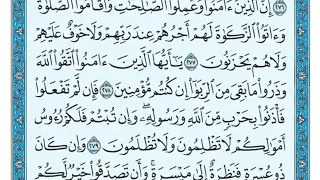 ٢٧٦ إِنَّ الَّذِينَ ءَامَنُوا وَعَمِلُوا الصَّٰلِحَٰتِ وَأَقَامُوا الصَّلَوٰةَ
وَءَاتَوُا الزَّكَوٰةَ لَهُمْ أَجْرُهُمْ عِندَ رَبِّهِمْ وَلَا خَوْفٌ عَلَيْهِمْ
وَلَا هُمْ يَحْزَنُونَ ٢٧٧ يَٰٓأَيُّهَا الَّذِينَ ءَامَنُوا اتَّقُوا اللَّهَ
وَذَرُوا مَا بَقِىَ مِنَ الرِّبَوٰٓا إِن كُنتُم مُّؤْمِنِينَ ٢٧٨ فَإِن لَّمْ تَفْعَلُوا
فَأْذَنُوا بِحَرْبٍ مِّنَ اللَّهِ وَرَسُولِهِۦ وَإِن تُبْتُمْ فَلَكُمْ رُءُوسُ
أَمْوَٰلِكُمْ لَا تَظْلِمُونَ وَلَا تُظْلَمُونَ ٢٧٩ وَإِن كَانَ
ذُو عُسْرَةٍ فَنَظِرَةٌ إِلَىٰ مَيْسَرَةٍ وَأَن تَصَدَّقُوا خَيْرٌ لَّكُمْ